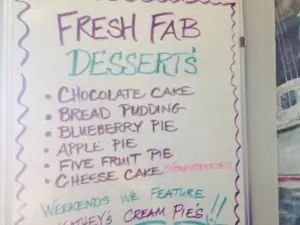 FRESH FAB
DESSERT's
• CHOCOLATE CAKE
• BREAD PUDDING
• BLUEBERRY PIE
• APPLE PIE
• FIVE FRUIT PIE
• CHEESE CAKE
WEEKENDS WE FEATURE
KATHEY'S CREAM PIE'S!!